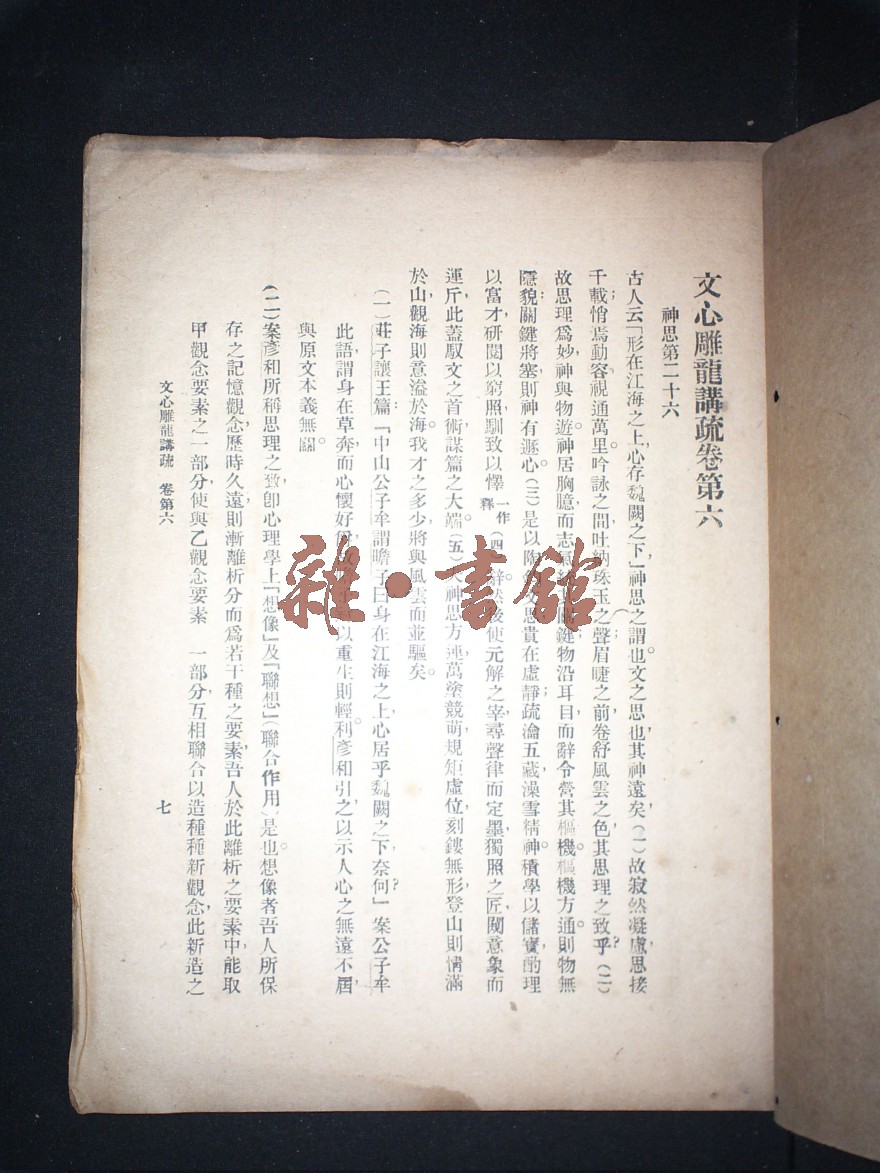 文心雕龍講疏卷第六
神思第二十六
古人云「形在江海之上，心存魏闕之下，」神思之謂也。文之思也，其神遠矣（一）故寂然凝慮，思接
千載；悄焉動容，視通萬里。吟詠之間，吐納珠玉之聲；眉睫之前，卷舒風雲之色，其思理之致乎？（二）
故思理爲妙，神與物遊。神居胸臆，而志氣統其關鍵；物沿耳目，而辭令管其樞機。樞機方通，則物無
隱貌；關鍵將塞，則神有遯心。（三）是以陶文思，貴在虛靜，疏瀹五藏，澡雪精神。積學以儲寶，酌理
以富才，研閱以窮照，馴致以懌一作釋（四）辭。然後使元解之宰，尋聲律而定墨，獨照之匠，闚意象而
運斤，此蓋馭文之首術，謀篇之大端。（五）夫神思方運，萬塗競萌，規矩虛位，刻鏤無形，登山則情滿
於山，觀海則意溢於海。我才之多少，將與風雲而並驅矣。
（一）莊子讓王篇：「中山公子牟謂瞻子曰，身在江海之上，心居乎魏闕之下，奈何？」案公子牟
此語，謂身在草莽，而心懷好以重生則輕利。彥和引之，以示人心之無遠不屆，
與原文本義無關。
（二）案彥和所稱思理之致，卽心理學上「想像」及「聯想」（聯合作用）是也。想像者，吾人所保
存之記憶觀念，歷時久遠，則漸離析分而爲若干種之要素，吾人於此離析之要素中，能取
甲觀念要素之一部分，使與乙觀念要素　一部分，互相聯合以造種種新觀念，此新造之
文心雕龍講疏　卷第六
七
雜·書館